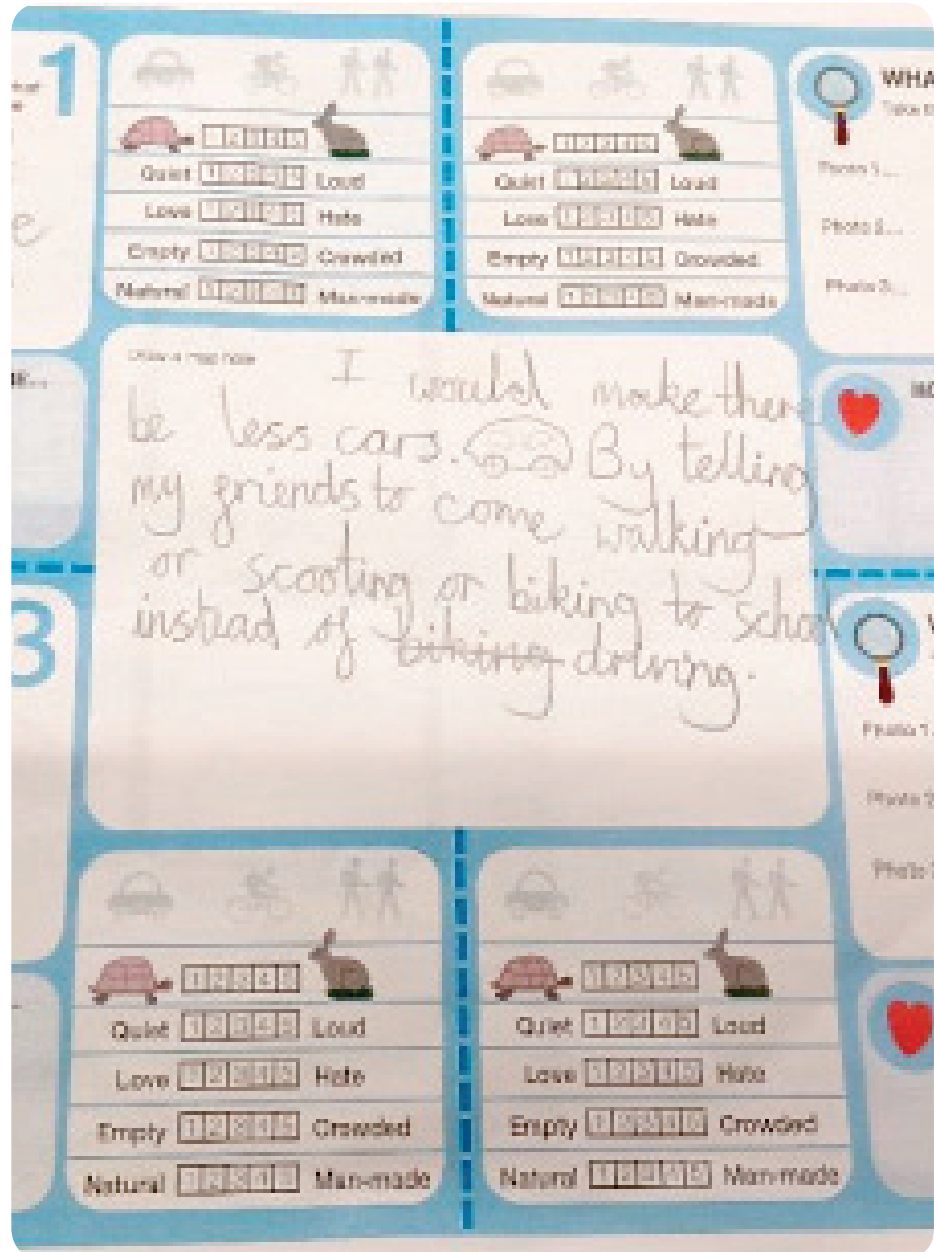 1
1 2 3 4 5
Quiet 1 2 3 4 5 Loud
Love 1 2 3 4 5 Hate
Empty 1 2 3 4 5 Crowded
Natural 1 2 3 4 5 Man-made
1 2 3 4 5
Quiet 1 2 3 4 5 Loud
Love 1 2 3 4 5 Hate
Empty 1 2 3 4 5 Crowded
Natural 1 2 3 4 5 Man-made
WHA
Take
Photo 1...
Photo 2...
Photo 3...
e
Draw a map here
I would make there
be less cars. By telling
my friends to come walking
or scooting or biking to schol
instead of biking driving.
3
Photo 1
Photo 2
Photo
1 2 3 4 5
Quiet 1 2 3 4 5 Loud
Love 1 2 3 4 5 Hate
Empty 1 2 3 4 5 Crowded
Natural 1 2 3 4 5 Man-made
1 2 3 4 5
Quiet 1 2 3 4 5 Loud
Love 1 2 3 4 5 Hate
Empty 1 2 3 4 5 Crowded
Natural 1 2 3 4 5 Man-made